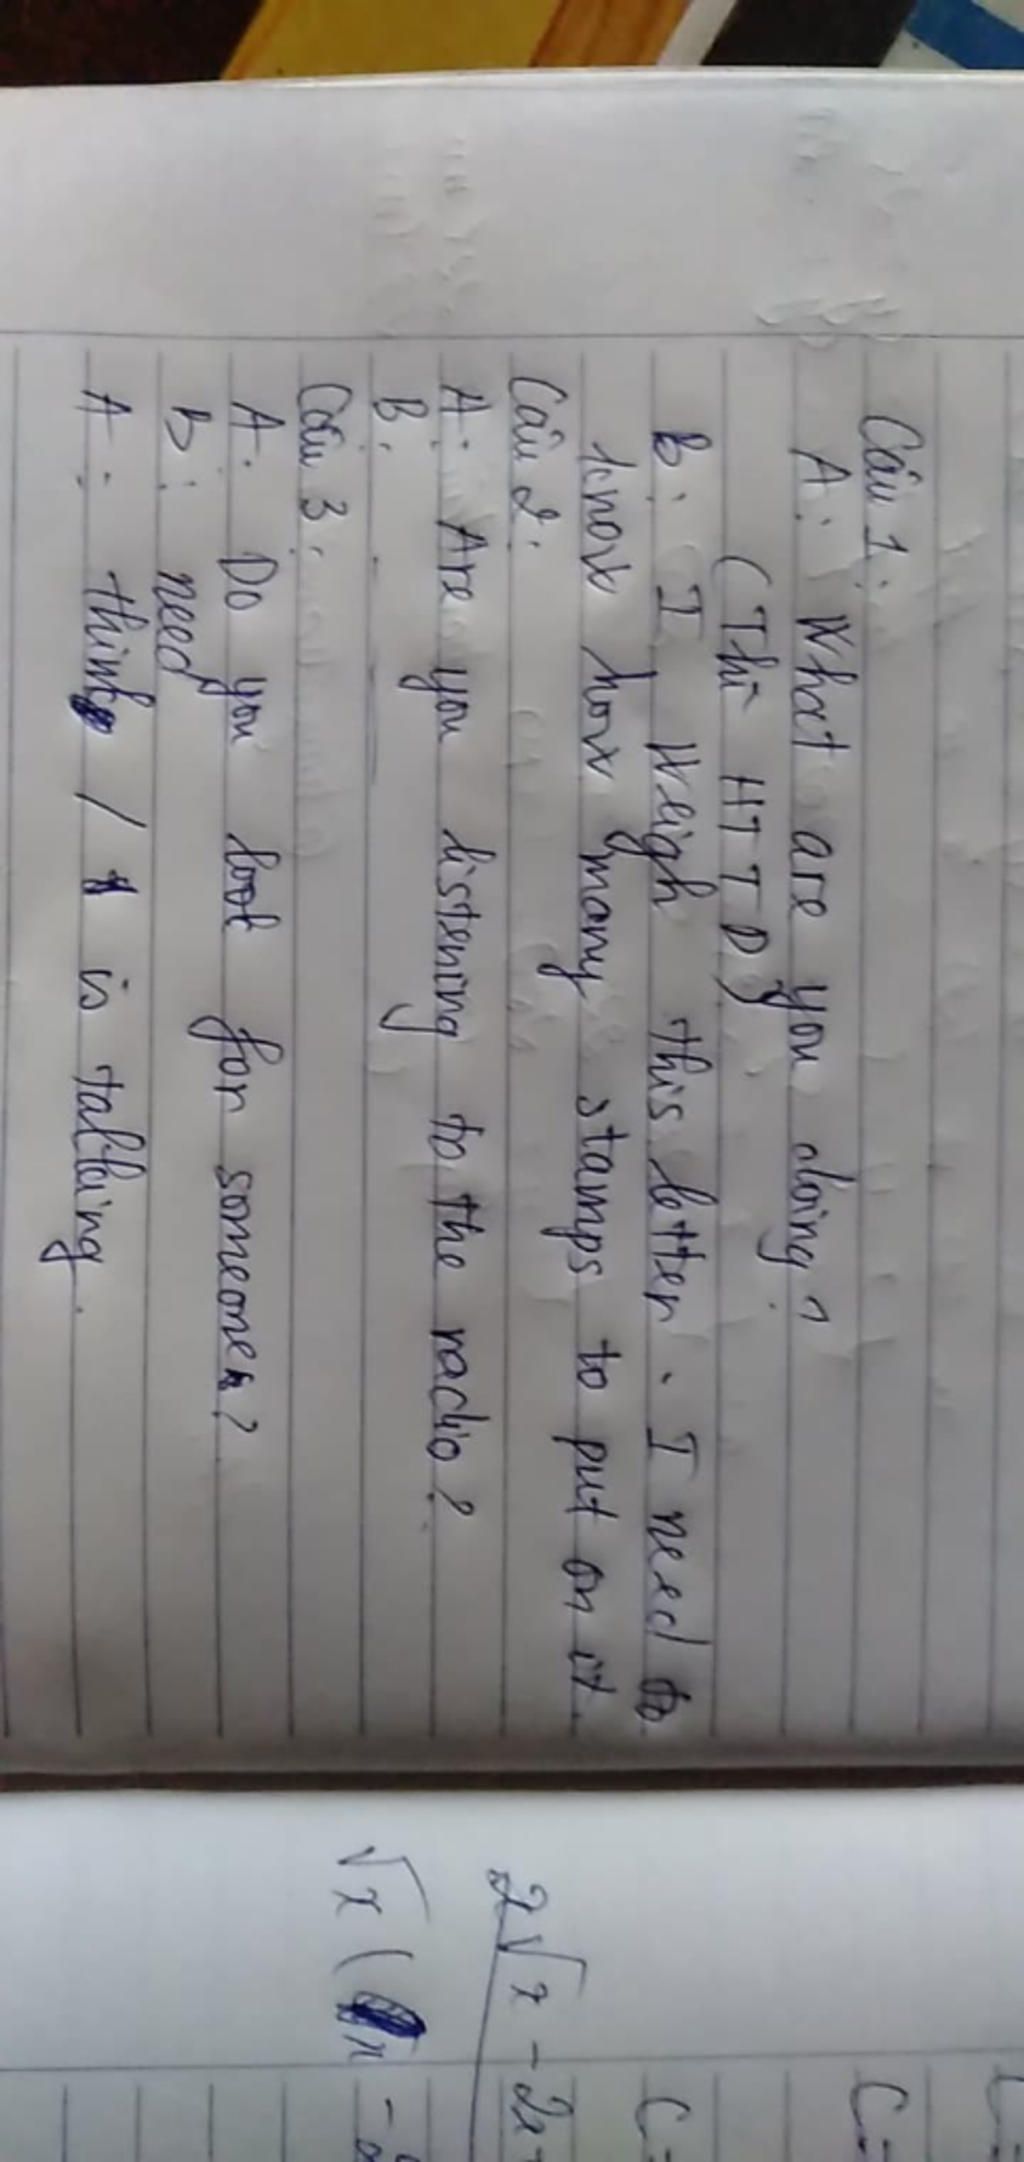 Câu 1:
A: What are you doing?
(Thì HTTD)
B: I weigh this letter. I need to
know how many stamps to put on it.
Câu 2:
A: Are you listening to the radio?
B:
Câu 3:
A: Do you look for someone?
B: need
A: think / is talking.
2√x - 2x
√x (
C=
C=